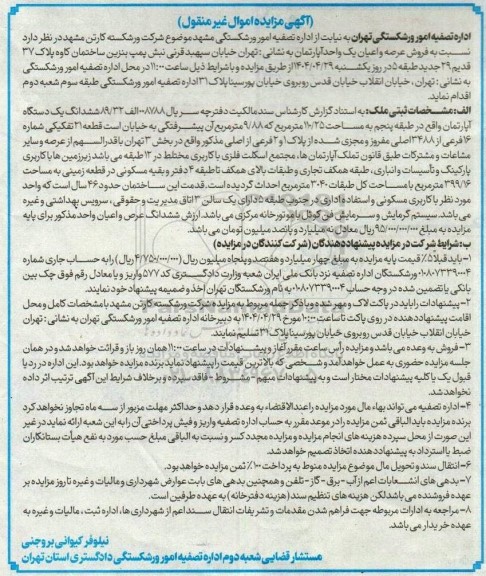 (آگهی مزایده اموال غیر منقول)
اداره تصفیه امور ورشکستگی تهران به نیابت از اداره تصفیه امور ورشکستگی مشهد موضوع شرکت ورشکسته کارتن مشهد در نظر دارد
نسبت به فروش عرصه و اعیان یک واحد آپارتمان به نشانی : تهران خیابان سپهبد قرنی نبش پمپ بنزین ساختمان کاوه پلاک ۳۷
قدیم ۲۹ جدید طبقه ۵ در روز یکشنبه ۱۴۰۴/۰۴/۲۹ از طریق مزایده و با شرایط ذیل ساعت ۱۱:۰۰ در محل اداره تصفیه امور ورشکستگی
به نشانی : تهران ، خیابان انقلاب خیابان قدس روبروی خیابان پورسینا پلاک ۳۱ اداره تصفیه امور ورشکستگی طبقه سوم شعبه دوم
اقدام نماید.
الف : مشخصات ثبتی ملک: به استناد گزارش کارشناس سند مالکیت دفترچه سریال ۰۰۸۷۸۸ الف ۸۹/۳۲ ششدانگ یک دستگاه
آپارتمان واقع در طبقه پنجم به مساحت ۲۱۰/۲۵ مترمربع که ۹/۸۸ مترمربع آن پیشرفتگی به خیابان است قطعه ۲۱ تفکیکی شماره
۱۶ فرعی از ۳۴۸۸ اصلی مفروز و مجزی شده از پلاک ۱ و ۲ فرعی از اصلی مذکور واقع در بخش ۳ تهران با قدرالسهم از عرصه و سایر
مشاعات و مشترکات طبق قانون تملک آپارتمان ها، مجتمع اسکلت فلزی با کاربری مختلط در ۱۲ طبقه می باشد زیرزمین ها با کاربری
پارکینگ و تأسیسات و انباری، طبقه همکف تجاری و طبقات بالای همکف تا طبقه ۴ دفتر و بقیه مسکونی در قطعه زمینی به مساحت
۳۹۹/۱۶ مترمربع با مساحت کل طبقات ۳۰۴۰ مترمربع احداث گردیده است. قدمت این ساختمان حدود ۴۶ سال است که واحد
مورد نظر با کاربری مسکونی و استفاده اداری در جنوب طبقه ۵ دارای یک سالن ۳ اتاق مدیریت و حقوقی ، سرویس بهداشتی و غیره
می باشد. سیستم گرمایش و سرمایش فن کوئل با موتورخانه مرکزی می باشد. ارزش ششدانگ عرصه و اعیان واحد مذکور برای پایه
مزایده به مبلغ ۹۵/۰۰۰/۰۰۰/۰۰۰ ریال معادل نه میلیارد و پانصد میلیون تومان می باشد.
ب: شرایط شرکت در مزایده پیشنهاد دهندگان (شرکت کنندگان در مزایده)
۱- باید قبلا ۵٪ قیمت پایه مزایده به مبلغ چهار میلیارد و هفتصد و پنجاه میلیون ریال (۴/۷۵۰/۰۰۰/۰۰۰ ریال) را به حساب جاری شماره
ورشکستگان اداره تصفیه نزد بانک ملی ایران شعبه وزارت دادگستری کد ۵۷۷ واریز و یا معادل رقم فوق چک بین
بانکی یا تضمین شده در وجه حساب به نام ورشکستگان تهران أخذ و ضمیمه پیشنهاد خود نمایند.
۲- پیشنهادات را باید در پاکت لاک و مهر شده و با ذکر جمله مربوط به مزایده شرکت ورشکسته کارتن مشهد با مشخصات کامل و محل
اقامت پیشنهاد دهنده در روی پاکت تا ساعت ۱۰:۰۰ مورخ ۱۴۰۴/۰۴/۲۹ به دبیرخانه اداره تصفیه امور ورشکستگی به نشانی : تهران
خیابان انقلاب خیابان قدس روبروی خیابان پورسینا پلاک ۳۱ تسلیم نمایند.
۳- فروش به وعده می باشد و مزایده رأس ساعت مقرر آغاز و پیشنهادات در ساعت ۱۱:۰۰ همان روز باز و قرائت خواهد شد و در همان
جلسه مزایده حضوری به عمل خواهد آمد و شخصی که بالاترین قیمت را پیشنهاد نماید برنده مزایده خواهد بود. این اداره در رد یا
قبول یک یا کلیه پیشنهادات مختار است و به پیشنهادات مبهم - مشروط - فاقد سپرده و برخلاف شرایط این آگهی ترتیب اثر داده
نخواهد شد.
۴- اداره تصفیه می تواند بهاء مال مورد مزایده را عندالاقتضاء به وعده قرار دهد و حداکثر مهلت مزبور از سه ماه تجاوز نخواهد کرد
برنده مزایده باید الباقی ثمن مزایده را در موعد مقرر به حساب اداره تصفیه واریز و فیش پرداختی آن را به این شعبه ارائه نماید در غیر
این صورت از محل سپرده هزینه های انجام مزایده و مزایده مجدد کسر و نسبت به الباقی مبلغ حسب مورد به نفع هیأت بستانکاران
ضبط یا استرداد به پیشنهاد دهنده اتخاذ تصمیم خواهد شد.
۶- انتقال سند و تحویل مال موضوع مزایده منوط به پرداخت ۱۰۰٪ ثمن مزایده خواهد بود.
۷- بدهی های انشعابات اعم از آب - برق - گاز - تلفن و همچنین بدهی های بابت عوارض شهرداری و مالیات و غیره تا روز مزایده بر
عهده فروشنده می باشد لکن هزینه های تنظیم سند (هزینه دفترخانه) به عهده طرفین است.
۸- مراجعه به ادارات مربوطه جهت فراهم شدن مقدمات و تشریفات انتقال سند اعم از شهرداری ها، اداره ثبت ، مالیات و غیره به
عهده خریدار می باشد.
نیلوفر کیوانی بروجنی
مستشار قضایی شعبه دوم اداره تصفیه امور ورشکستگی دادگستری استان تهران